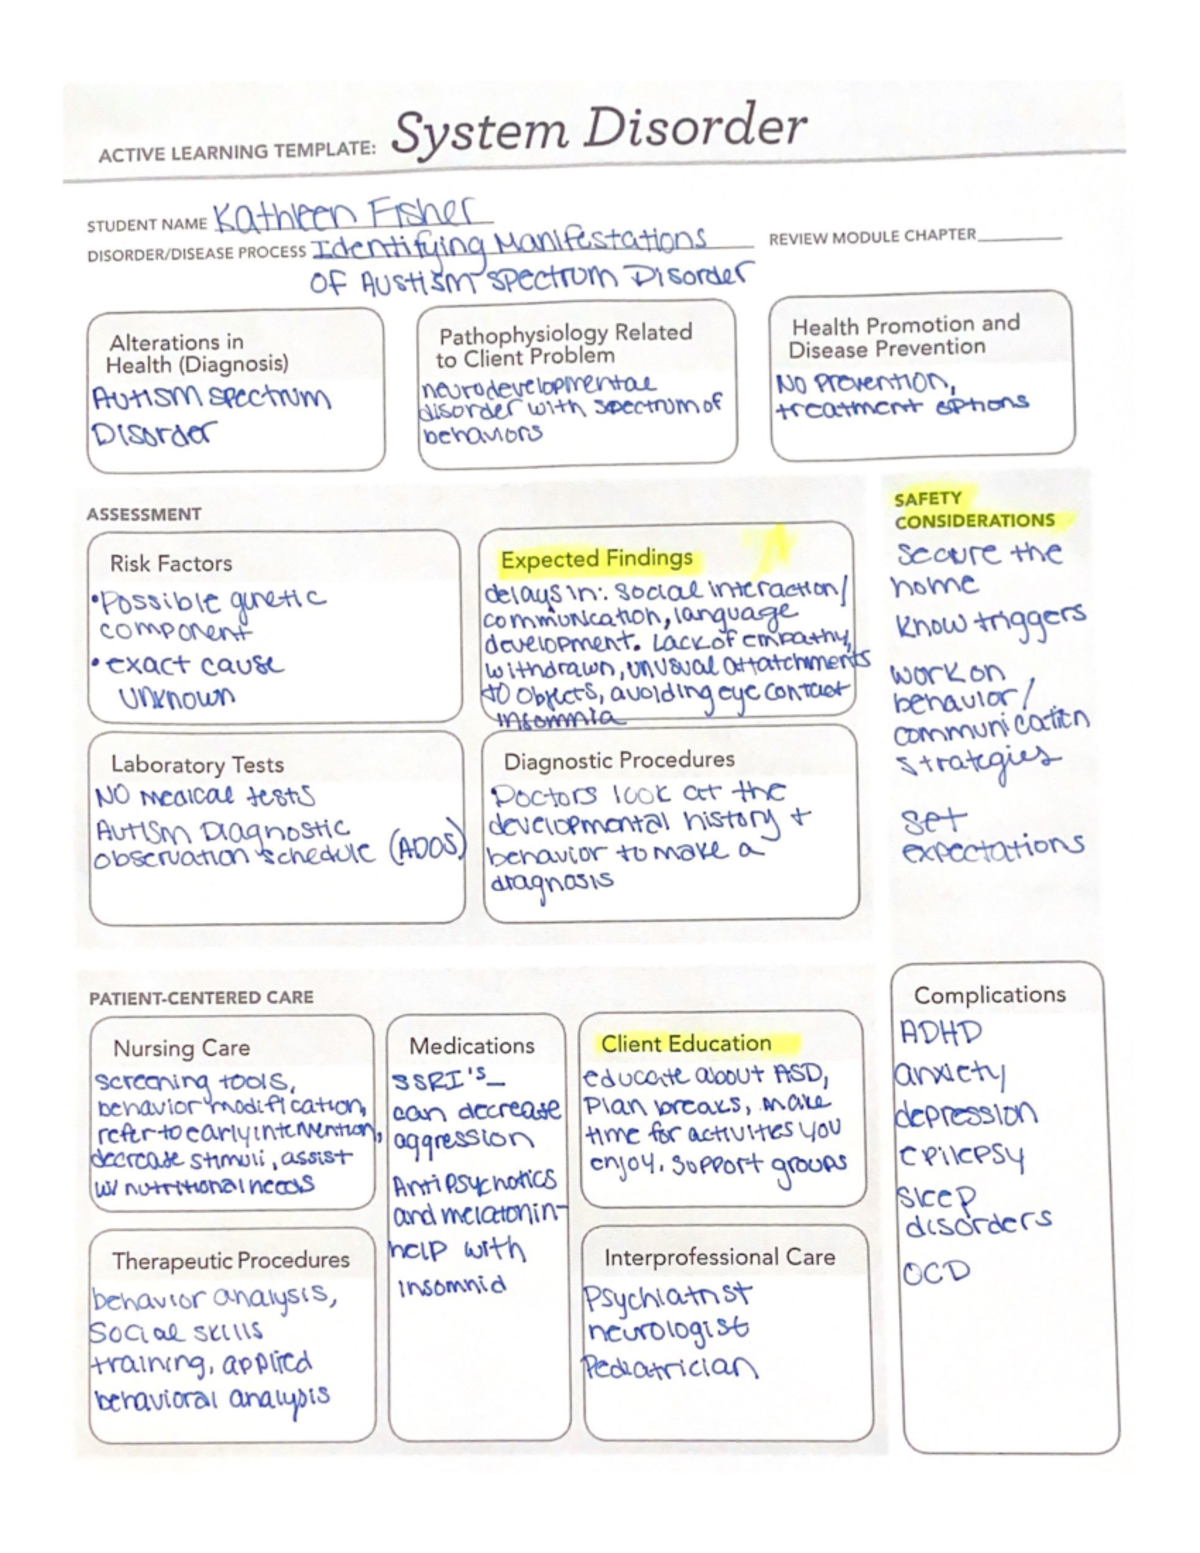 ACTIVE LEARNING TEMPLATE: System Disorder
STUDENT NAME Kathleen Fisher
DISORDER/DISEASE PROCESS Identifying Manifestations
REVIEW MODULE CHAPTER
OF Austism Spectrum Disorder
Alterations in
Health (Diagnosis)
Autism spectrum
Disorder
Pathophysiology Related
to Client Problem
neurodevelopmental
disorder with spectrum of
behaviors
Health Promotion and
Disease Prevention
No prevention,
treatment options
ASSESSMENT
Risk Factors
•Possible genetic
component
•exact cause
unknown
Expected Findings
delays in: social interaction/
communication, language
development. Lack of empathy,
withdrawn, unusual attatchments
to objects, avoiding eye contact
insomnia
SAFETY
CONSIDERATIONS
Secure the
home
Know triggers
work on
behavior/
communication
strategies
set
expectations
Laboratory Tests
NO medical tests
Autism Diagnostic
observation schedule (ADOS)
Diagnostic Procedures
Doctors look at the
developmental history +
behavior to make a
diagnosis
PATIENT-CENTERED CARE
Nursing Care
screening tools,
behavior modification,
refer to early intervention,
decrease stimuli, assist
w/ nutritional needs
Medications
SSRI's–
can decrease
aggression
Antipsychotics
and melatonin–
help with
insomnia
Client Education
educate about ASD,
Plan breaks, make
time for activities you
enjoy. support groups
Complications
ADHD
anxiety
depression
epilepsy
sleep
disorders
OCD
Therapeutic Procedures
behavior analysis,
Social skills
training, applied
behavioral analysis
Interprofessional Care
Psychiatrist
neurologist
Pediatrician